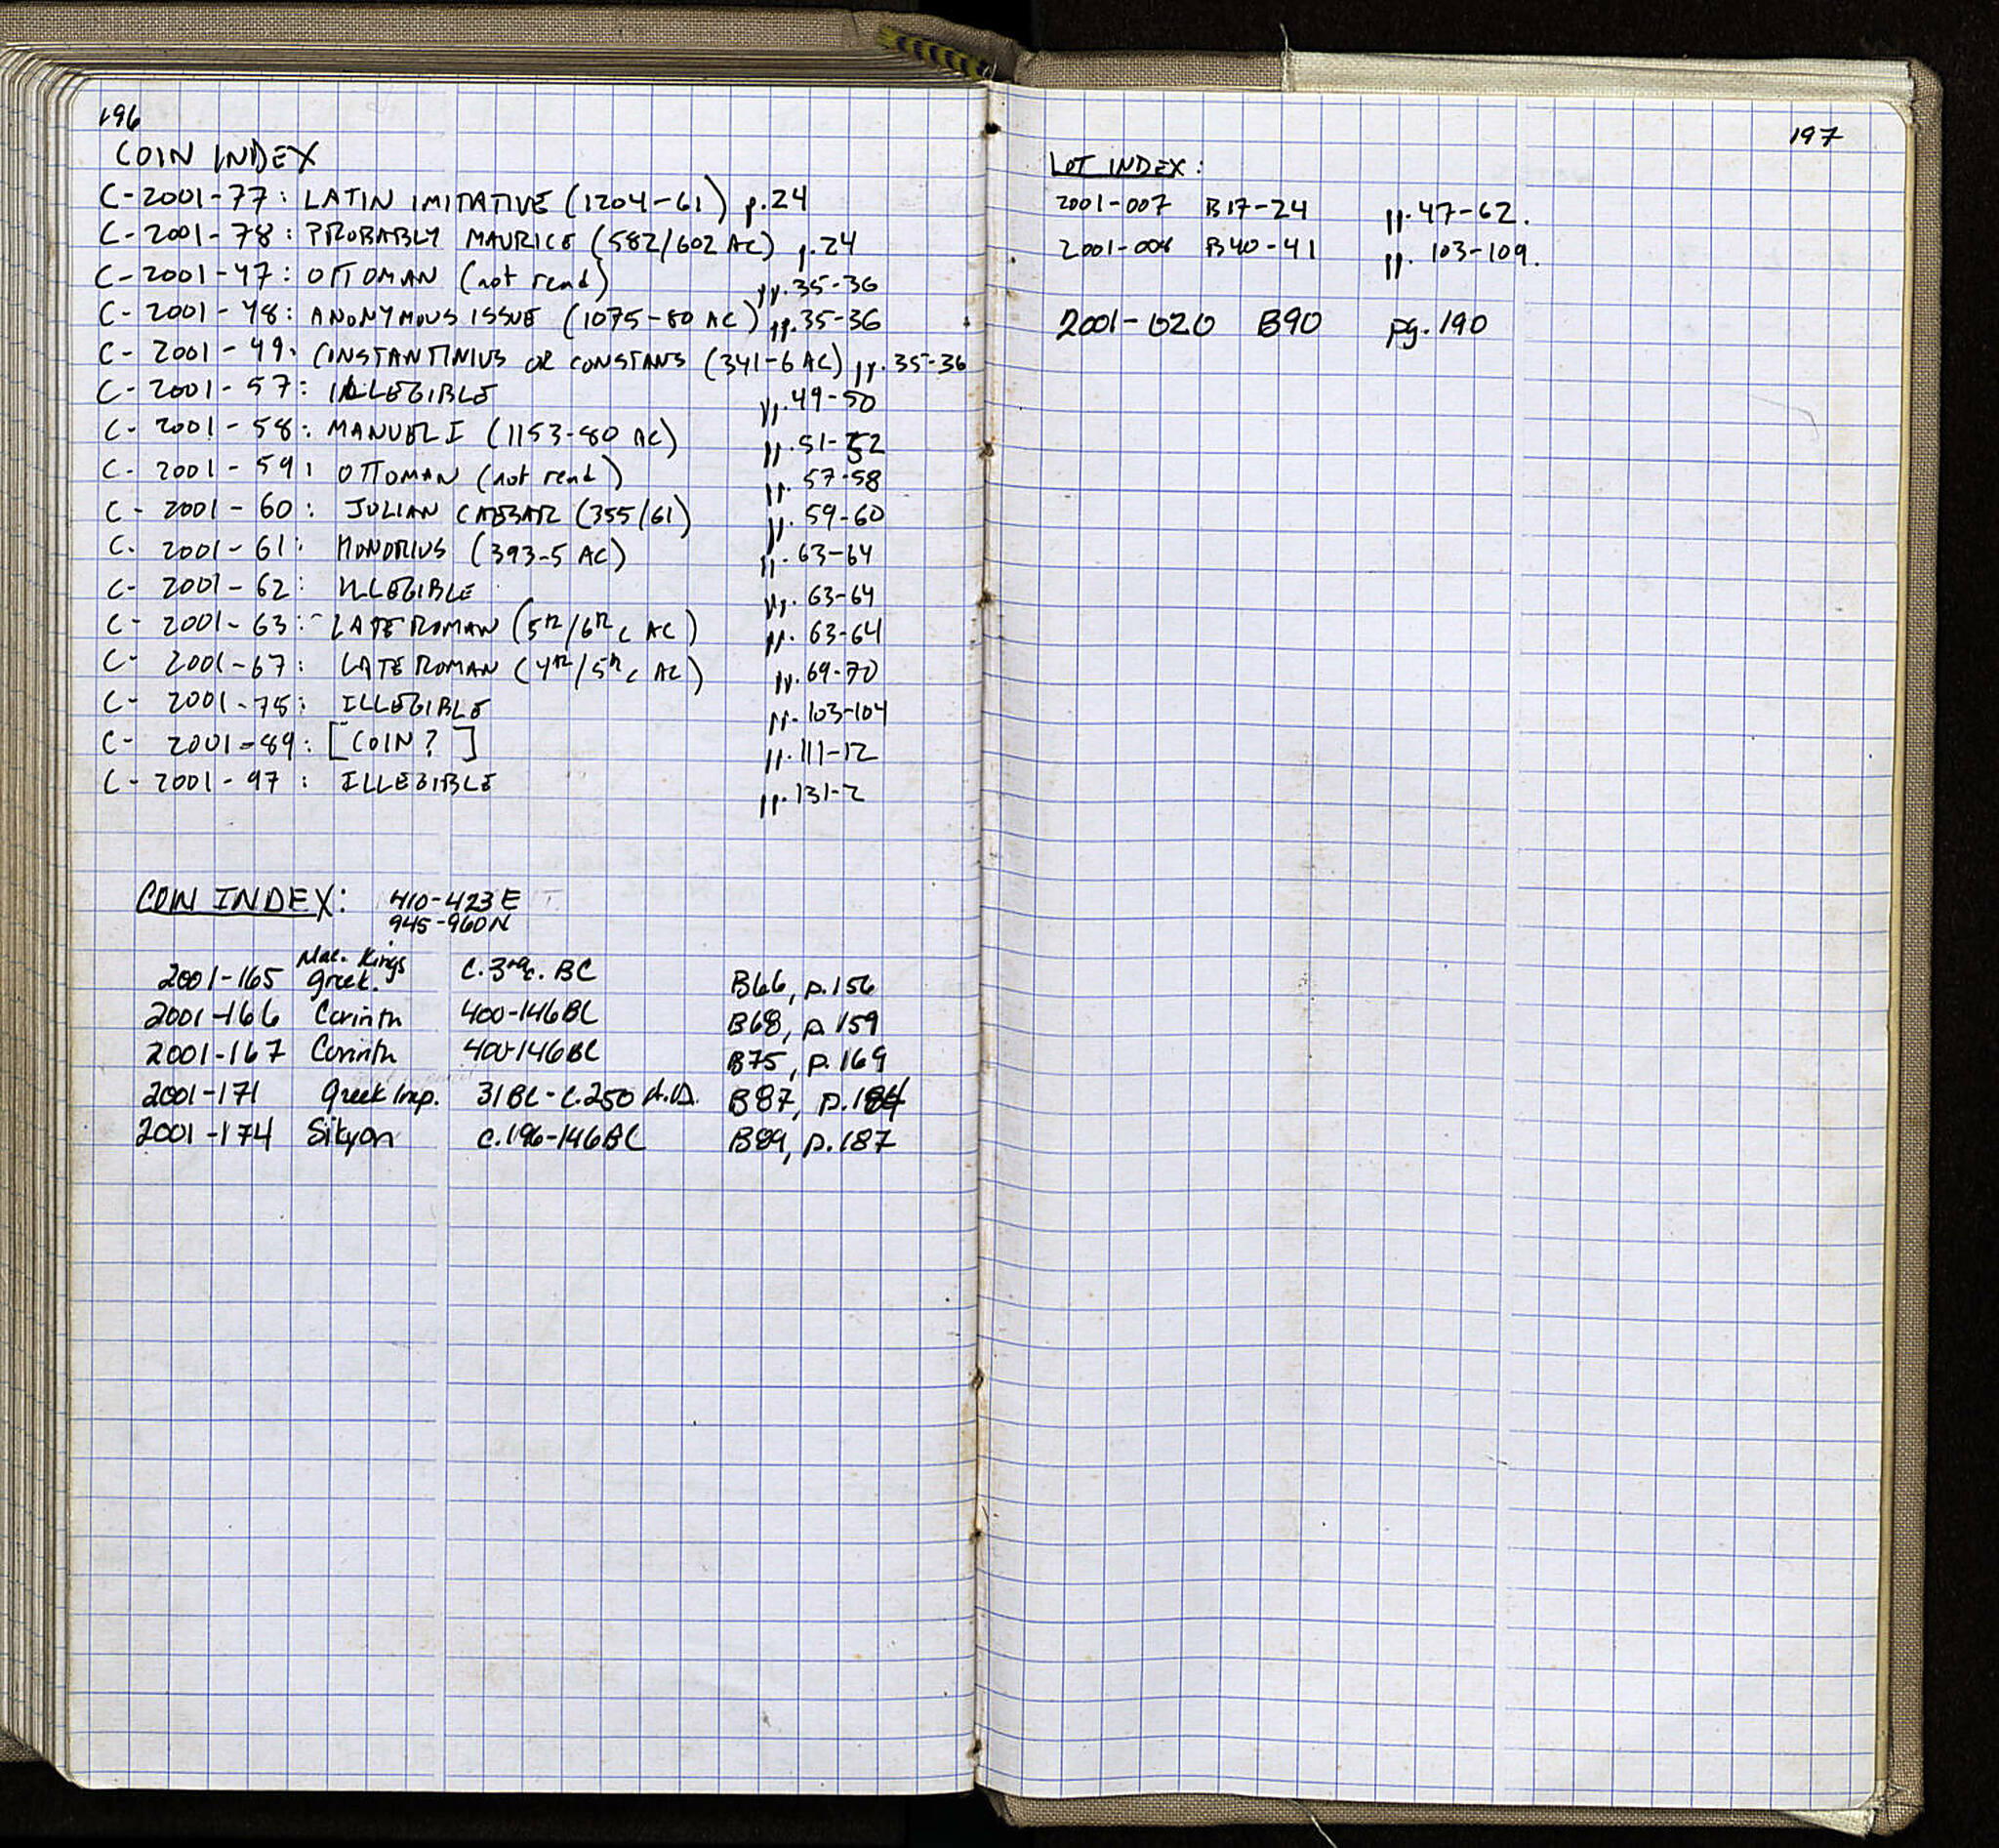 196
COIN INDEX
C-2001-77: LATIN IMITATIVE (1204-61) p.24
C-2001-78: PROBABLY MAURICE (582/602 AC) p.24
C-2001-47: OTTOMAN (not read) pp.35-36
C-2001-48: ANONYMOUS ISSUE (1075-80 AC) pp.35-36
C-2001-49: CONSTANTINIUS OR CONSTANS (341-6 AC) pp.35-36
C-2001-57: ILLEGIBLE pp.49-50
C-2001-58: MANUEL I (1153-80 AC) pp.51-52
C-2001-59: OTTOMAN (not read) pp.57-58
C-2001-60: JULIAN CAESAR (355/61) pp.59-60
C-2001-61: HONORIUS (393-5 AC) pp.63-64
C-2001-62: ILLEGIBLE pp.63-64
C-2001-63: LATE ROMAN (5th/6th c AC) pp.63-64
C-2001-67: LATE ROMAN (4th/5th c AC) pp.69-70
C-2001-75: ILLEGIBLE pp.103-104
C-2001-89: [COIN?] pp.111-12
C-2001-97: ILLEGIBLE pp.131-2
COIN INDEX: 410-423 E
945-960N
Mac. Kings
2001-165 Greek. C.3rd c. BC B66, p.156
2001-166 Corinth 400-146BC B68, p.159
2001-167 Corinth 400-146BC B75, p.169
2001-171 Greek Imp. 31BC-C.250 A.D. B87, p.184
2001-174 Sikyon c.196-146BC B89, p.187
197
LOT INDEX:
2001-007 B17-24 pp.47-62.
2001-008 B40-41 pp. 103-109.
2001-020 B90 pg.190